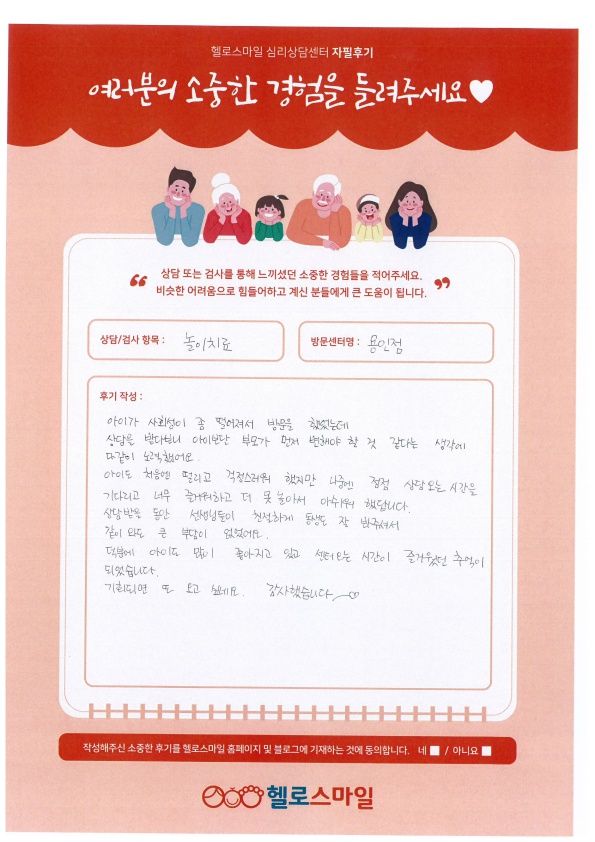 헬로스마일 심리상담센터 자필후기
여러분의 소중한 경험을 들려주세요
상담 또는 검사를 통해 느끼셨던 소중한 경험들을 적어주세요.
비슷한 어려움으로 힘들어하고 계신 분들에게 큰 도움이 됩니다.
상담/검사 항목 : 놀이치료
방문센터명 : 용인점
후기 작성 :
아이가 사회성이 좀 떨어져서 방문을 했었는데
상담을 받다보니 아이보단 부모가 먼저 변해야 할 것 같다는 생각에
다같이 노력했어요.
아이도 처음엔 떨리고 걱정스러워 했지만 나중엔 점점 상담오는 시간을
기다리고 너무 즐거워하고 더 못 놀아서 아쉬워 했답니다.
상담받은 동안 선생님들이 친절하게 동생도 잘 봐주셔서
같이 와도 큰 부담이 없었어요.
덕분에 아이도 많이 좋아지고 있고 센터오는 시간이 즐거웠던 추억이
되었습니다.
기회되면 또 오고 싶네요. 감사했습니다
작성해주신 소중한 후기를 헬로스마일 홈페이지 및 블로그에 기재하는 것에 동의합니다. 네 / 아니요
헬로스마일